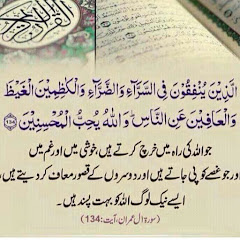 الَّذِیْنَ یُنْفِقُوْنَ فِی السَّرَّآءِ وَالضَّرَّآءِ وَالْكٰظِمِیْنَ الْغَیْظَ
وَالْعَافِیْنَ عَنِ النَّاسِ ؕ وَاللّٰهُ یُحِبُّ الْمُحْسِنِیْنَ ﴿134﴾
جو اللہ کی راہ میں خرچ کرتے ہیں، خوشی میں اور غم میں
اور جو غصے کو پی جاتے ہیں اور دوسروں کے قصور معاف کر دیتے ہیں،
ایسے نیک لوگ اللہ کو بہت پسند ہیں۔
(سورۃ ال عمران، آیت: 134)